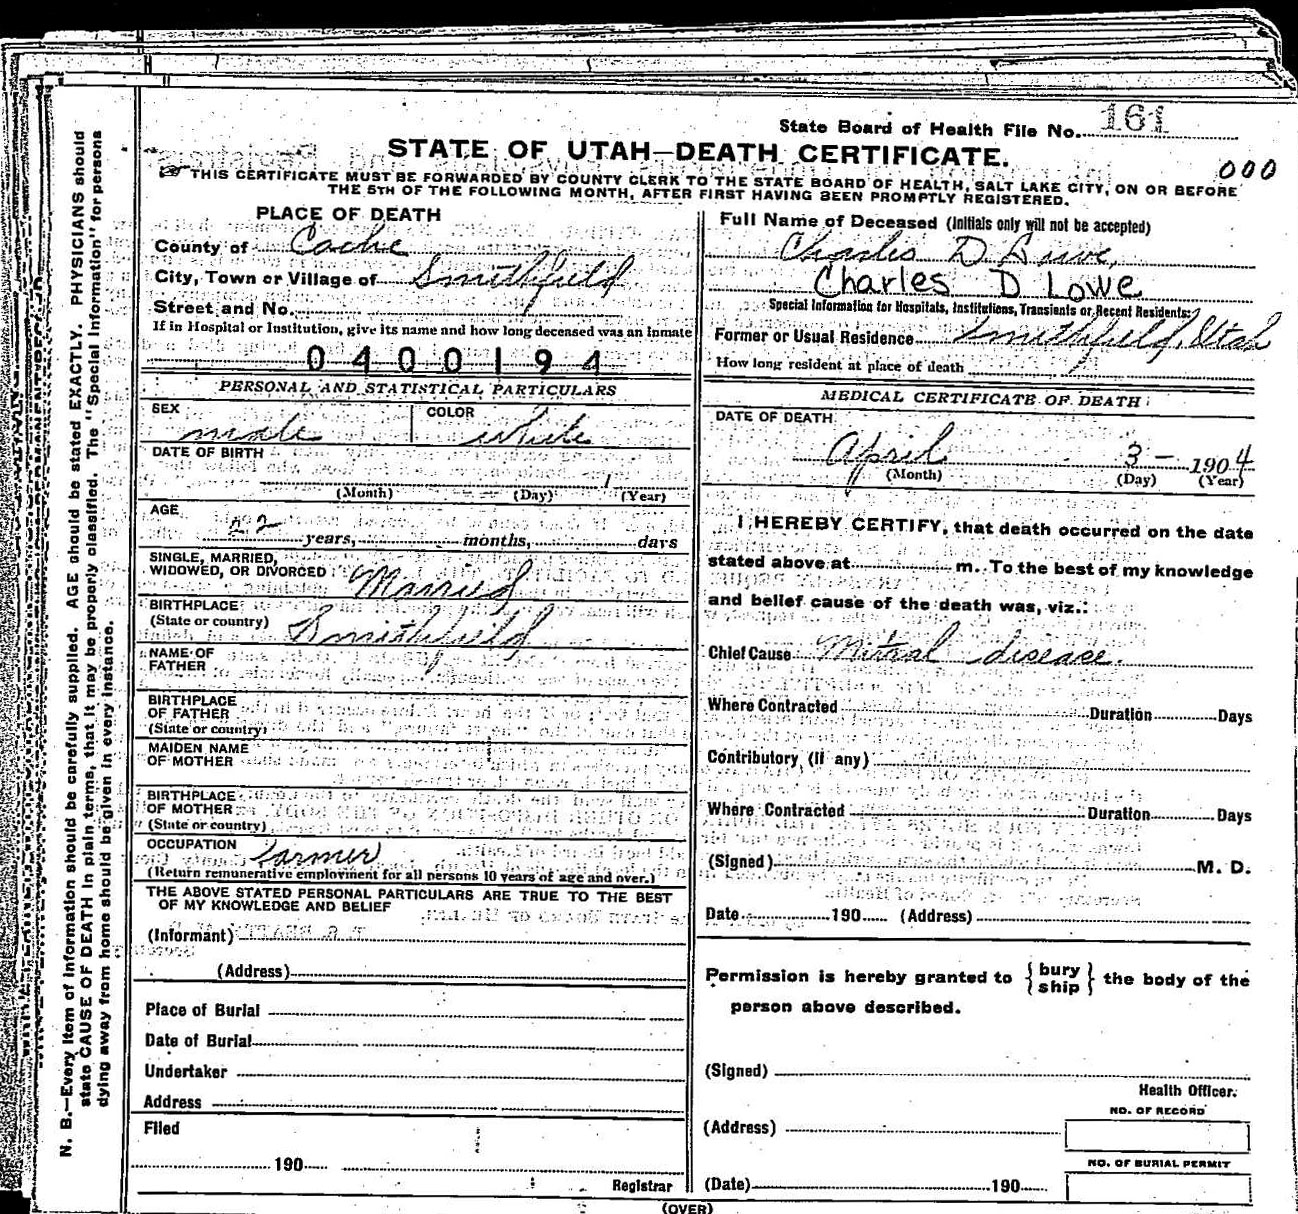 State Board of Health File No. 161
STATE OF UTAH—DEATH CERTIFICATE.
000
THIS CERTIFICATE MUST BE FORWARDED BY COUNTY CLERK TO THE STATE BOARD OF HEALTH, SALT LAKE CITY, ON OR BEFORE
THE 5TH OF THE FOLLOWING MONTH, AFTER FIRST HAVING BEEN PROMPTLY REGISTERED.
N. B.—Every item of information should be carefully supplied. AGE should be stated EXACTLY. PHYSICIANS should
state CAUSE OF DEATH in plain terms, that it may be properly classified. The "Special Information" for persons
dying away from home should be given in every instance.
PLACE OF DEATH
County of Cache
City, Town or Village of Smithfield
Street and No.
If in Hospital or Institution, give its name and how long deceased was an inmate
0400194
PERSONAL AND STATISTICAL PARTICULARS
SEX COLOR
male white
DATE OF BIRTH
(Month) (Day) (Year)
AGE
22 years, months, days
SINGLE, MARRIED,
WIDOWED, OR DIVORCED Married
BIRTHPLACE
(State or country) Smithfield
NAME OF
FATHER
BIRTHPLACE
OF FATHER
(State or country)
MAIDEN NAME
OF MOTHER
BIRTHPLACE
OF MOTHER
(State or country)
OCCUPATION farmer
(Return remunerative employment for all persons 10 years of age and over.)
THE ABOVE STATED PERSONAL PARTICULARS ARE TRUE TO THE BEST
OF MY KNOWLEDGE AND BELIEF
(Informant)
(Address)
Place of Burial
Date of Burial
Undertaker
Address
Filed
190
Registrar
Full Name of Deceased (Initials only will not be accepted)
Charles D Lowe,
Charles D Lowe
Special Information for Hospitals, Institutions, Transients or Recent Residents:
Former or Usual Residence Smithfield, Utah
How long resident at place of death
MEDICAL CERTIFICATE OF DEATH
DATE OF DEATH
April 3 - 1904
(Month) (Day) (Year)
I HEREBY CERTIFY, that death occurred on the date
stated above at m. To the best of my knowledge
and belief cause of the death was, viz.:
Chief Cause Mitral disease.
Where Contracted Duration Days
Contributory (If any)
Where Contracted Duration Days
(Signed) M. D.
Date 190 (Address)
Permission is hereby granted to { bury
ship } the body of the
person above described.
(Signed)
Health Officer.
NO. OF RECORD
(Address)
NO. OF BURIAL PERMIT
(Date) 190
(OVER)